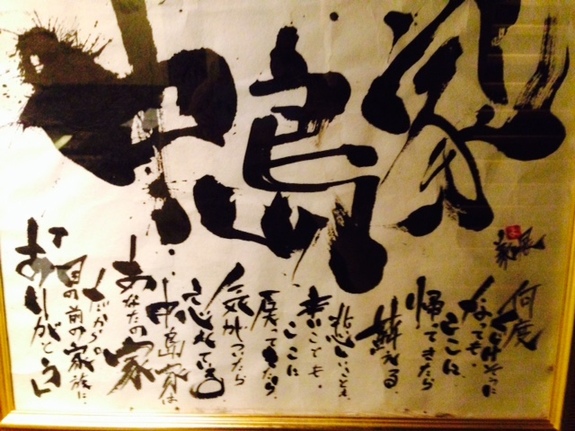 中島家
何度
くじけそうに
なっても、
ここに
帰ってきたら
蘇える。
悲しいことも、
辛いことも、
ここに
戻ってきたら、
気がついたら
忘れている
中島家は、
あなたの家
だから。
目の前の家族に、
ありがとう